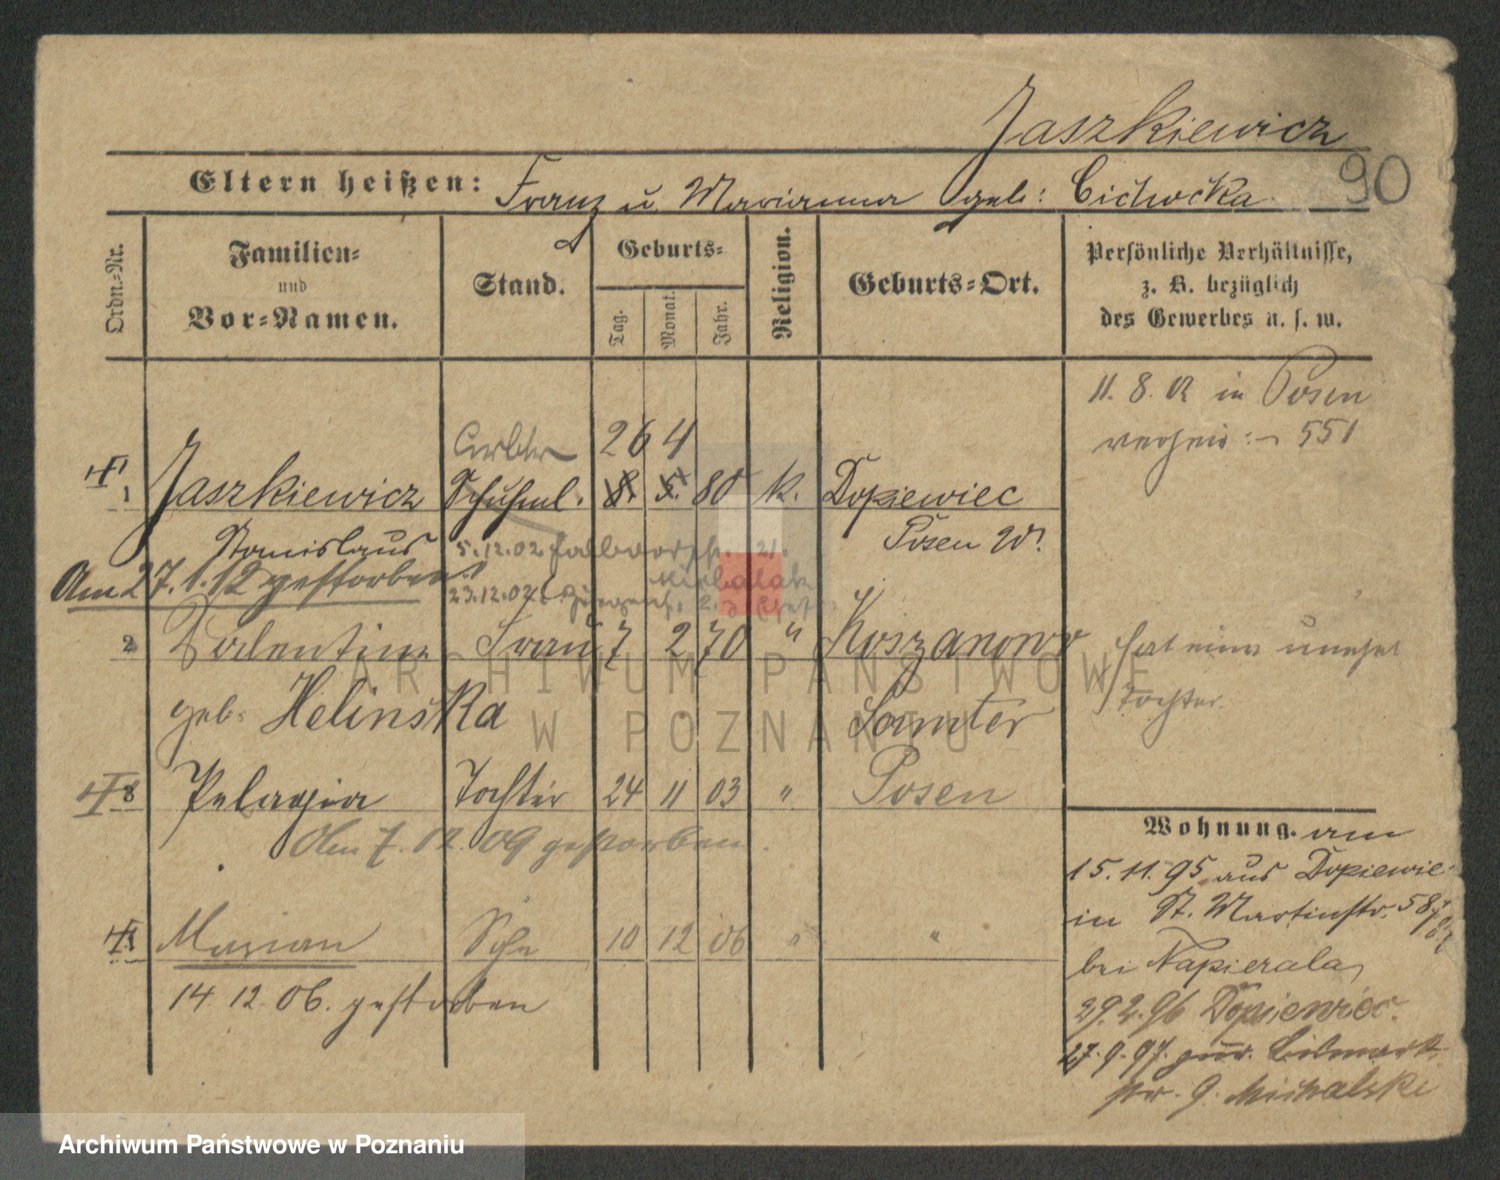 Jaszkiewicz
Eltern heißen: Franz u Marianna geb: Cichocka
90
Ordn.-Nr.
Familien-
und
Vor-Namen.
Stand.
Geburts-
Tag.
Monat.
Jahr.
Religion.
Geburts-Ort.
Persönliche Verhältnisse,
z. B. bezüglich
des Gewerbes u. s. w.
11. 8. 02 in Posen
551
26 4
1 Jaszkiewicz Schuhm. 8. 5. 80 k. Dopiewiec
Stanislaus Posen W.
5.12.02 21.
Am 27.1.12 gestorben
23.12.02 Michalak
2 Valentine Frau 7 2 70 " Koszanowo hat eine unehel
geb. Helinska Samter Tochter
3 Pelagia Tochter 24 11 03 " Posen
Am 7. 02. 09 gestorben.
Marian Sohn 10 12 06 " "
14 12. 06. gestorben
Wohnung. am
15.11.95 aus Dopiewiec
in St. Martinstr. 58
bei Napierala
29.2.96 Dopiewiec.
27.9.97. zur. Bismark
str. 9. Michalski
ARCHIWUM PAŃSTWOWE
W POZNANIU
Archiwum Państwowe w Poznaniu